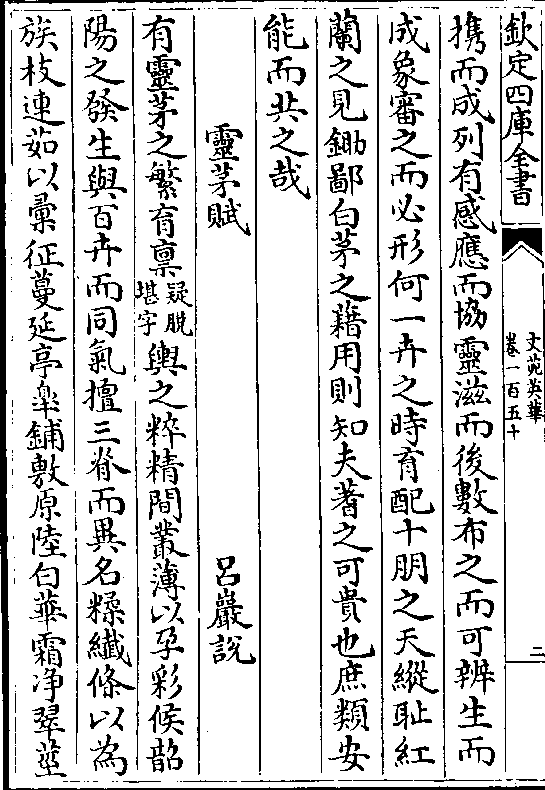 欽定四庫全書
文苑英華
卷一百五十
二
㩗而成列有感應而協靈滋而後數布之而可辨生而
成象審之而必形何一卉之時育配十朋之天縱耻紅
蘭之見鋤鄙白茅之藉用則知夫蓍之可貴也庶類安
能而共之哉
靈茅賦
呂巖說
有靈茅之繁育禀疑脱堪字輿之粹精間叢薄以孕彩候韶
陽之發生與百卉而同氣擅三脊而異名糅纎條以為
族枝連茹以彚征蔓延亭臯鋪敷原陸白華霜浄翠莖